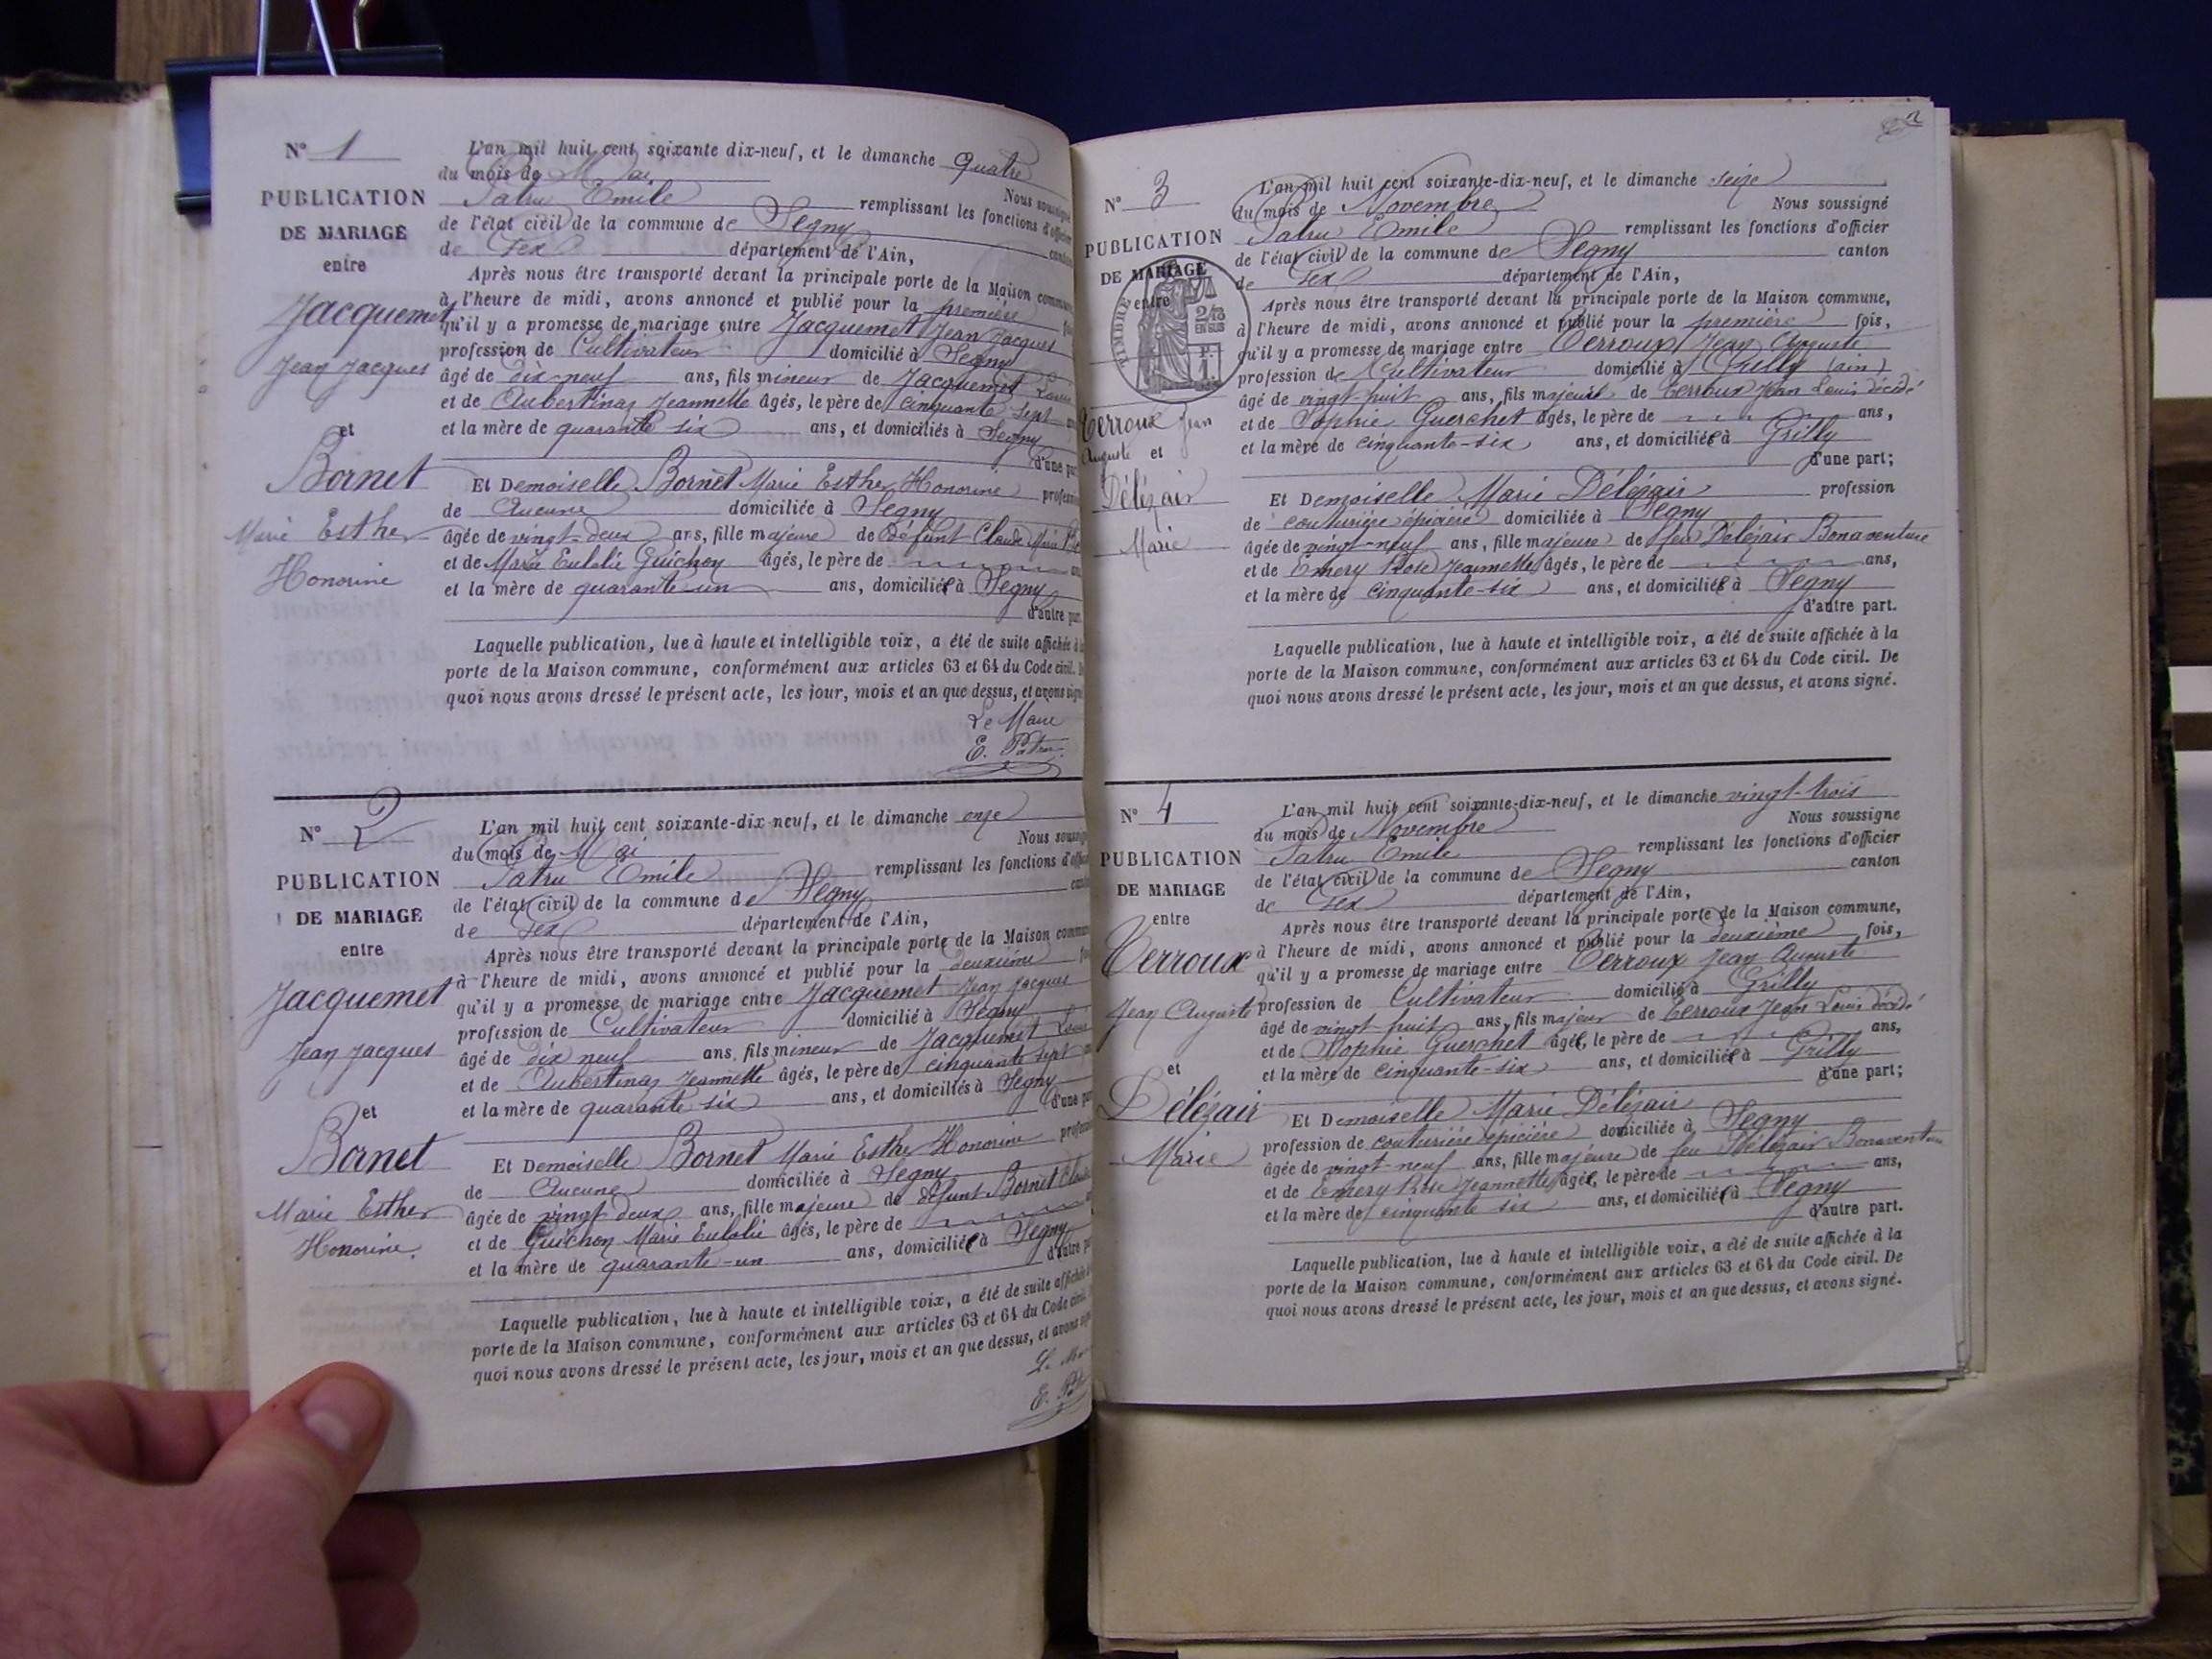 N° 1
PUBLICATION
DE MARIAGE
entre
Jacquemet
Jean Jacques
et
Bornet
Marie Esther
Honorine
L'an mil huit cent soixante dix-neuf, et le dimanche quatre
du mois de Mai Nous soussigné
Patru Emile remplissant les fonctions d'officier
de l'état civil de la commune de Segny
de Gex département de l'Ain, canton
Après nous être transporté devant la principale porte de la Maison commune
à l'heure de midi, avons annoncé et publié pour la première fois
qu'il y a promesse de mariage entre Jacquemet Jean Jacques
profession de Cultivateur domicilié à Segny
âgé de dix-neuf ans, fils mineur de Jacquemet Louis
et de Aubertinaz Jeannette âgés, le père de cinquante-sept
et la mère de quarante six ans, et domiciliés à Segny
d'une part
Et Demoiselle Bornet Marie Esther Honorine profession
de Aucune domiciliée à Segny
âgée de vingt-deux ans, fille majeure de Défunt Claude
et de Marie Eulalie Guichon âgés, le père de
et la mère de quarante-un ans, domiciliée à Segny
d'autre part
Laquelle publication, lue à haute et intelligible voix, a été de suite affichée à la
porte de la Maison commune, conformément aux articles 63 et 64 du Code civil. De
quoi nous avons dressé le présent acte, les jour, mois et an que dessus, et avons signé
Le Maire
E. Patru
N° 2
PUBLICATION
DE MARIAGE
entre
Jacquemet
Jean Jacques
et
Bornet
Marie Esther
Honorine.
L'an mil huit cent soixante-dix-neuf, et le dimanche onze
du mois de Mai Nous soussigné
Patru Emile remplissant les fonctions d'officier
de l'état civil de la commune de Segny canton
de Gex département de l'Ain,
Après nous être transporté devant la principale porte de la Maison commune
à l'heure de midi, avons annoncé et publié pour la deuxième
qu'il y a promesse de mariage entre Jacquemet Jean Jacques
profession de Cultivateur domicilié à Segny
âgé de dix neuf ans, fils mineur de Jacquemet Louis
et de Aubertinaz Jeannette âgés, le père de cinquante sept
et la mère de quarante six ans, et domiciliés à Segny
d'une part
Et Demoiselle Bornet Marie Esther Honorine profession
de Aucune domiciliée à Segny
âgée de vingt deux ans, fille majeure de défunt Bornet Claude
et de Guichon Marie Eulalie âgés, le père de
et la mère de quarante-un ans, domiciliée à Segny
d'autre part
Laquelle publication, lue à haute et intelligible voix, a été de suite affichée
porte de la Maison commune, conformément aux articles 63 et 64 du Code civil.
quoi nous avons dressé le présent acte, les jour, mois et an que dessus, et avons signé
Le Maire
E. Patru
2
N° 3
PUBLICATION
DE MARIAGE
entre
TIMBRE
2/10
EN SUS
Verroux Jean
Auguste et
Délézair
Marie
L'an mil huit cent soixante-dix-neuf, et le dimanche seize
du mois de Novembre Nous soussigné
Patru Emile remplissant les fonctions d'officier
de l'état civil de la commune de Segny canton
de Gex département de l'Ain,
Après nous être transporté devant la principale porte de la Maison commune,
à l'heure de midi, avons annoncé et publié pour la première fois,
qu'il y a promesse de mariage entre Verroux Jean Auguste
profession de Cultivateur domicilié à Grilly (ain)
âgé de vingt-huit ans, fils majeur de Verroux Jean Louis décédé
et de Sophie Guerchet âgés, le père de ans,
et la mère de cinquante-six ans, et domiciliée à Grilly
d'une part;
Et Demoiselle Marie Délézair profession
de couturière épicière domiciliée à Segny
âgée de vingt-neuf ans, fille majeure de feu Délézair Bonaventure
et de Emery Rose Jeannette âgés, le père de ans,
et la mère de cinquante-six ans, et domiciliée à Segny
d'autre part.
Laquelle publication, lue à haute et intelligible voix, a été de suite affichée à la
porte de la Maison commune, conformément aux articles 63 et 64 du Code civil. De
quoi nous avons dressé le présent acte, les jour, mois et an que dessus, et avons signé.
N° 4
PUBLICATION
DE MARIAGE
entre
Verroux
Jean Auguste
et
Délézair
Marie
L'an mil huit cent soixante-dix-neuf, et le dimanche vingt-trois
du mois de Novembre Nous soussigné
Patru Emile remplissant les fonctions d'officier
de l'état civil de la commune de Segny canton
de Gex département de l'Ain,
Après nous être transporté devant la principale porte de la Maison commune,
à l'heure de midi, avons annoncé et publié pour la deuxième fois,
qu'il y a promesse de mariage entre Verroux Jean Auguste
profession de Cultivateur domicilié à Grilly
âgé de vingt-huit ans, fils majeur de Verroux Jean Louis décédé
et de Sophie Guerchet âgés, le père de ans,
et la mère de cinquante-six ans, et domiciliée à Grilly
d'une part;
Et Demoiselle Marie Délézair
profession de couturière épicière domiciliée à Segny
âgée de vingt-neuf ans, fille majeure de feu Délézair Bonaventure
et de Emery Rose Jeannette âgés, le père de ans,
et la mère de cinquante six ans, et domiciliée à Segny
d'autre part.
Laquelle publication, lue à haute et intelligible voix, a été de suite affichée à la
porte de la Maison commune, conformément aux articles 63 et 64 du Code civil. De
quoi nous avons dressé le présent acte, les jour, mois et an que dessus, et avons signé.